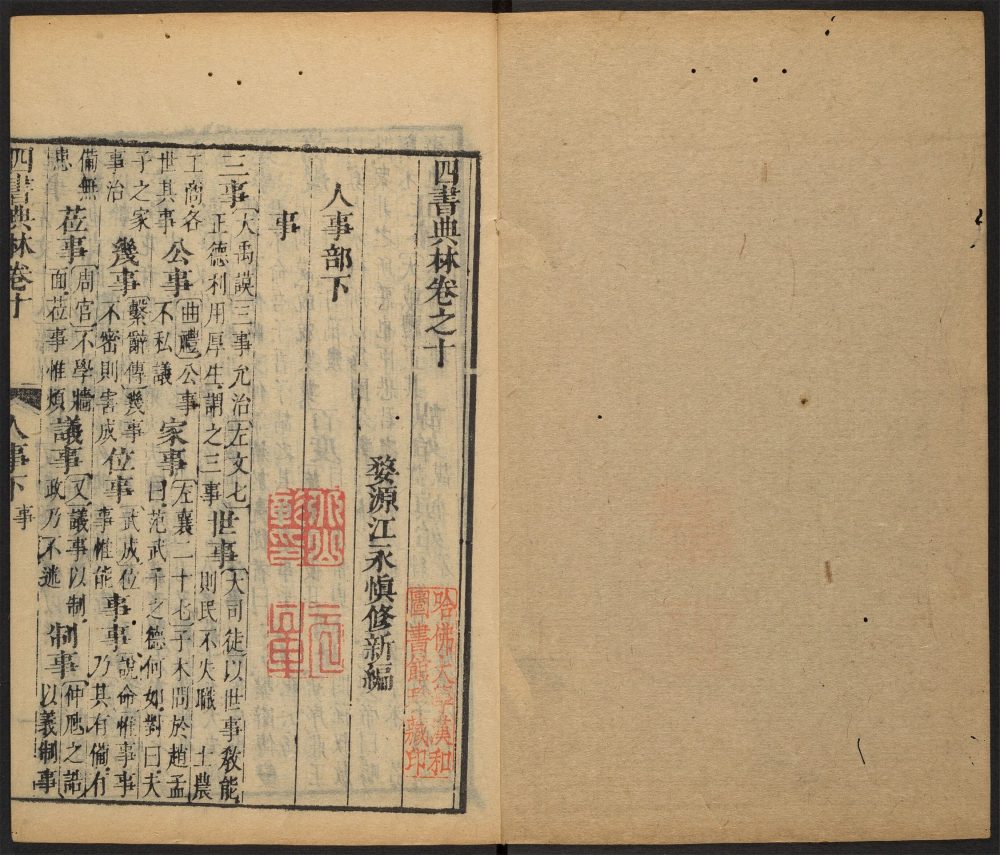 四書典林卷之十
婺源江永慎修新編
哈佛大學漢和
圖書館珍藏印
人事部下
事
三事 大禹謨三事允治左文七正德利用厚生謂之三事 世事 大司徒以世事敎能則民不失職士農
工商各世其事 公事 曲禮公事不私議 家事 左襄二十七子木問於趙孟曰范武子之德何如對曰夫
子之家事治 幾事 繫辭傳幾事不密則害成 位事 武成位事惟能 事事 說命惟事事乃其有備有
備無患 莅事 周官不學牆面莅事惟煩 議事 又議事以制政乃不迷 制事 仲虺之誥以義制事
四書典林卷十 人事下 事